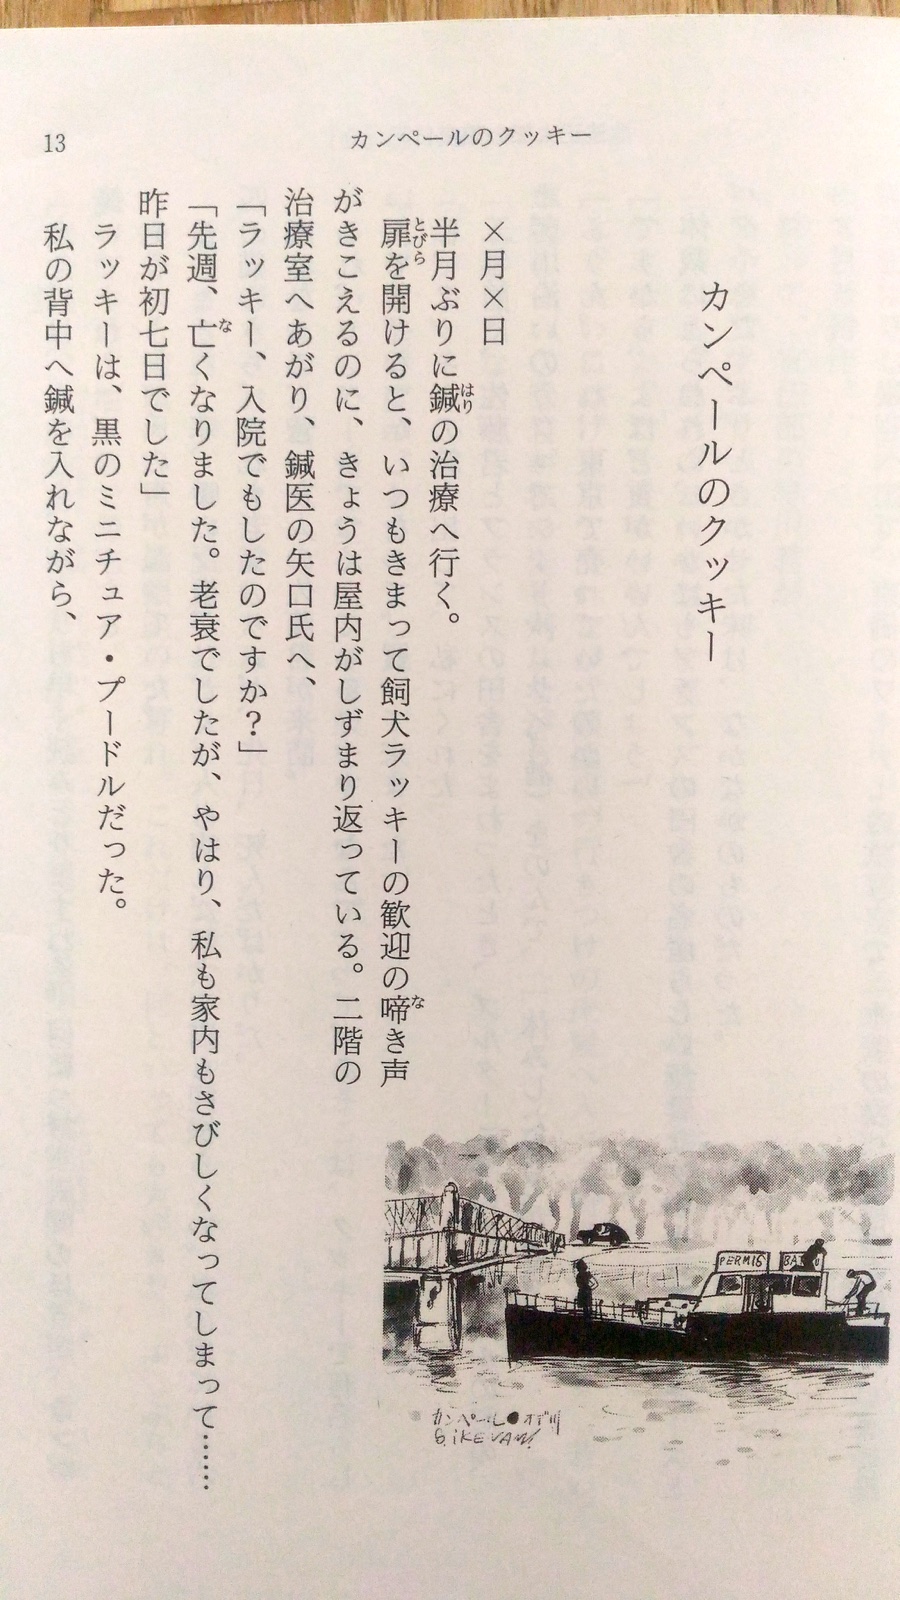 カンペールのクッキー
13
カンペールのクッキー
×月×日
半月ぶりに鍼の治療へ行く。
はり
扉を開けると、いつもきまって飼犬ラッキーの歓迎の啼き声
とびら
な
がきこえるのに、きょうは屋内がしずまり返っている。二階の
治療室へあがり、鍼医の矢口氏へ、
「ラッキー、入院でもしたのですか？」
「先週、亡くなりました。老衰でしたが、やはり、私も家内もさびしくなってしまって……
な
昨日が初七日でした」
ラッキーは、黒のミニチュア・プードルだった。
私の背中へ鍼を入れながら、
PERMIS
カンペール●オデ川